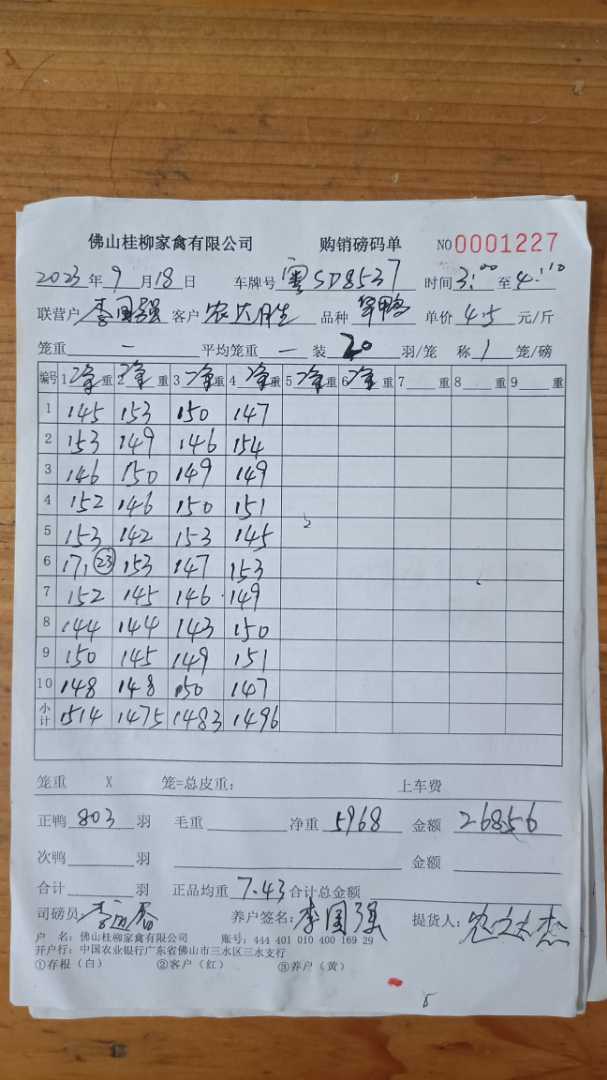 佛山桂柳家禽有限公司 购销磅码单 NO 0001227
2023年9月18日 车牌号 粤SD8537 时间 3:00 至 4:10
联营户 李国强 客户 农大胜 品种 旱鸭 单价 4.5 元/斤
笼重 — 平均笼重 — 装 20 羽/笼 称 1 笼/磅
编号 1 净重 2 净重 3 净重 4 净重 5 净重 6 净重 7 重 8 重 9 重
1 145 153 150 147
2 153 149 146 154
3 146 150 149 149
4 152 146 150 151
5 153 142 153 145
6 171 23 153 147 153
7 152 145 146 149
8 144 144 143 150
9 150 145 149 151
10 148 148 150 147
小计 1514 1475 1483 1496
笼重 X 笼=总皮重： 上车费
正鸭 803 羽 毛重 净重 5968 金额 26856
次鸭 羽 金额
合计 羽 正品均重 7.43 合计总金额
司磅员 养户签名：李国强 提货人：
户 名：佛山桂柳家禽有限公司 账号：444 401 010 400 169 29
开户行：中国农业银行广东省佛山市三水区三水支行
①存根（白） ②客户（红） ③养户（黄）